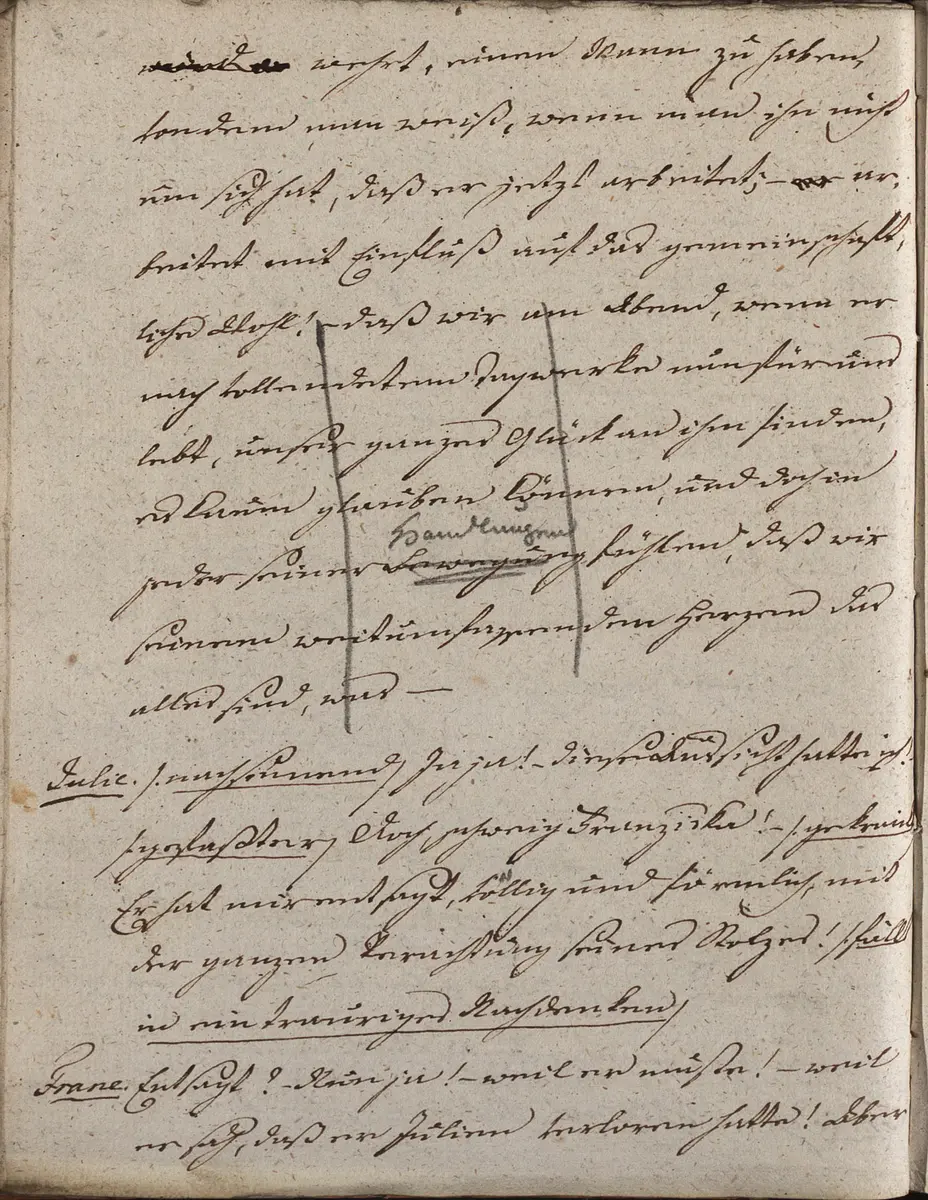 wehrt, einen Mann zu haben,
von dem man weiß, wenn man ihn nicht
um sich hat, daß er jetzt arbeitet; – ar-
beitet mit Einfluß auf das gemeinschaft-
liche Wohl! – daß wir am Abend, wenn er
nach vollendetem Tagwerke nun für uns
lebt, unser ganzes Glück an ihm finden,
es kaum glauben können, und doch in
Handlungen
jeder seiner Bewegung fühlen, daß wir
seinem weitumfassenden Herzen das
alles sind, was —
Julie. /: nachsinnend / Ja ja! – diese Aussicht hatte ich!
/: gefaßter / Doch schweig Franziska! – /: gekränkt
Er hat mir entsagt, völlig und förmlich, mit
der ganzen Verachtung seines Stolzes! /: fällt
in ein trauriges Nachdenken /
Franc. Entsagt? – Nun ja! – weil er muste! – weil
er sah, daß er Julien verloren hatte! Aber